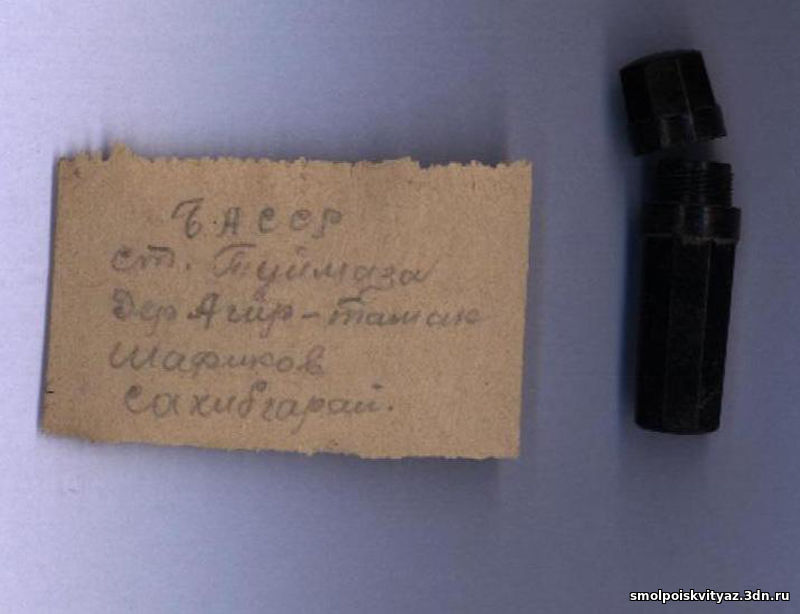 Б.АССР
ст. Туймаза
Дер Агир-тамак
Шафиков
Сахибгарай.
smolpoiskvityaz.3dn.ru